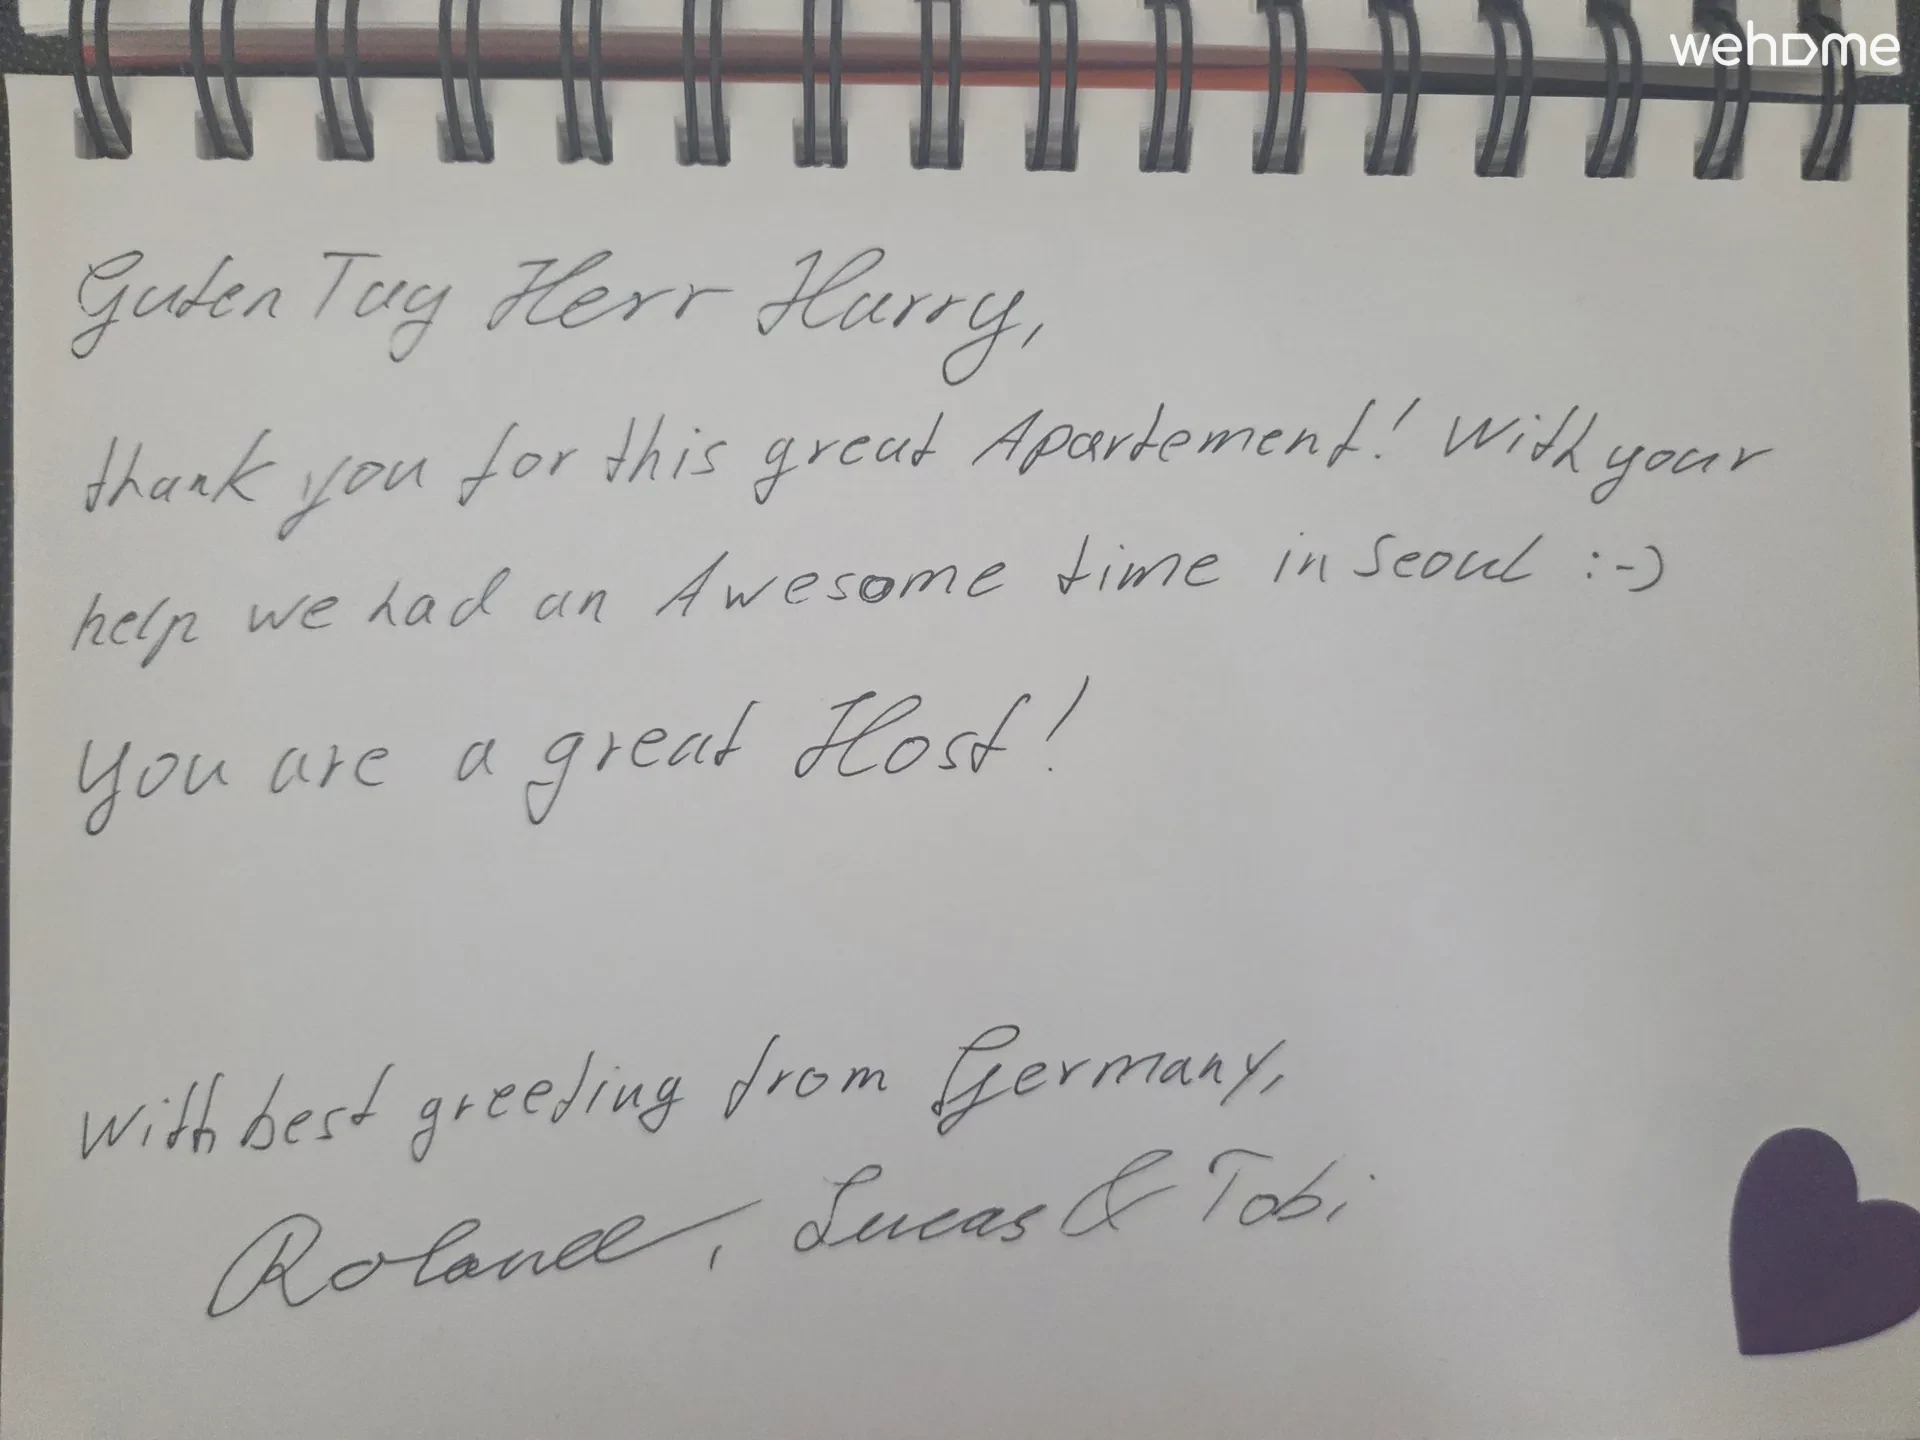 wehome
Guten Tag Herr Harry,
thank you for this great Apartement! With your
help we had an Awesome time in Seoul :-)
you are a great Host!
With best greeting from Germany,
Roland, Lucas & Tobi